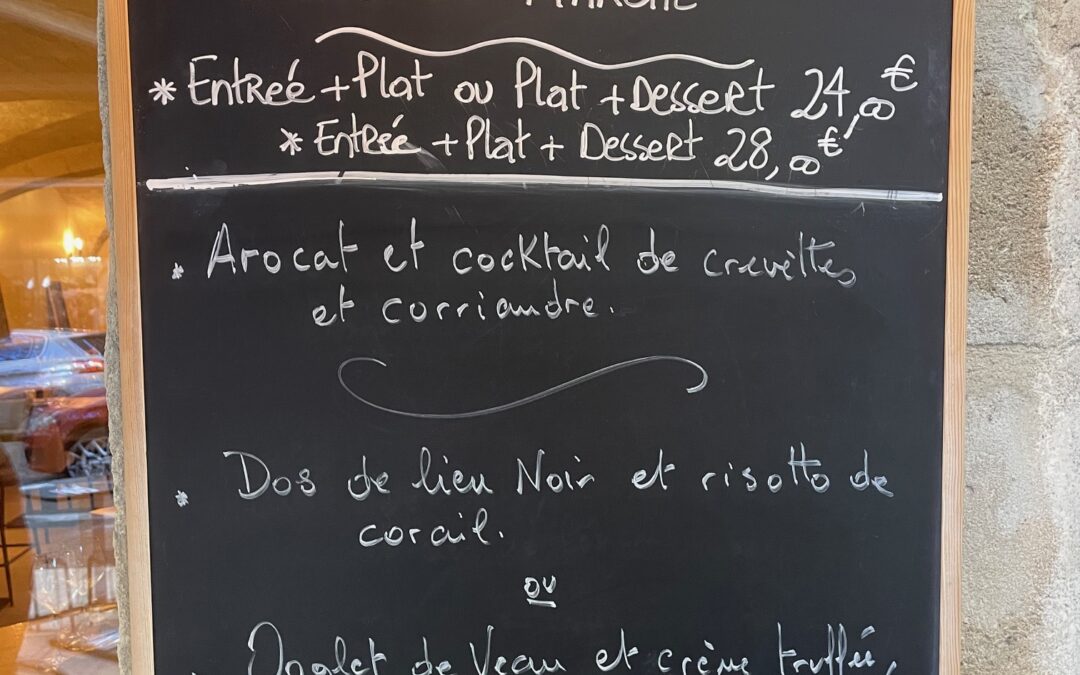 MARCHÉ
* Entrée + Plat ou Plat + Dessert 24,00€
* Entrée + Plat + Dessert 28,00€
* Avocat et cocktail de crevettes
et corriandre.
* Dos de lieu Noir et risotto de
corail.
ou
Onglet de Veau et crème truffée,